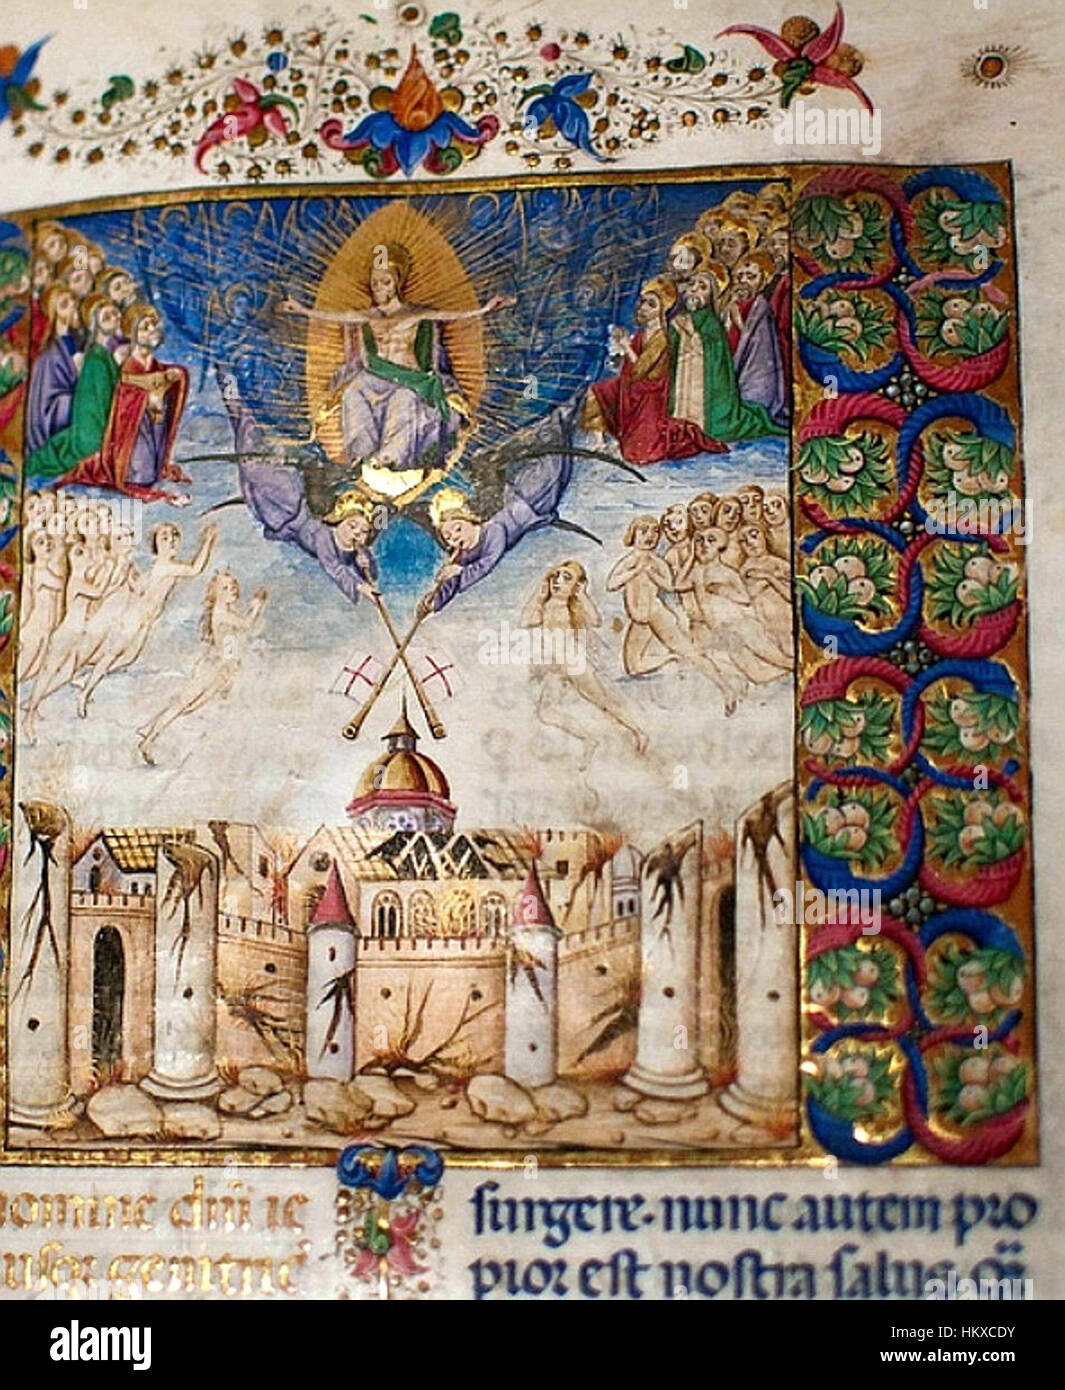 nomine dñi ie
genitric
surgere. nunc autem pro
pior est nostra salus qũ
alamy
Image ID: HKXCDY
www.alamy.com